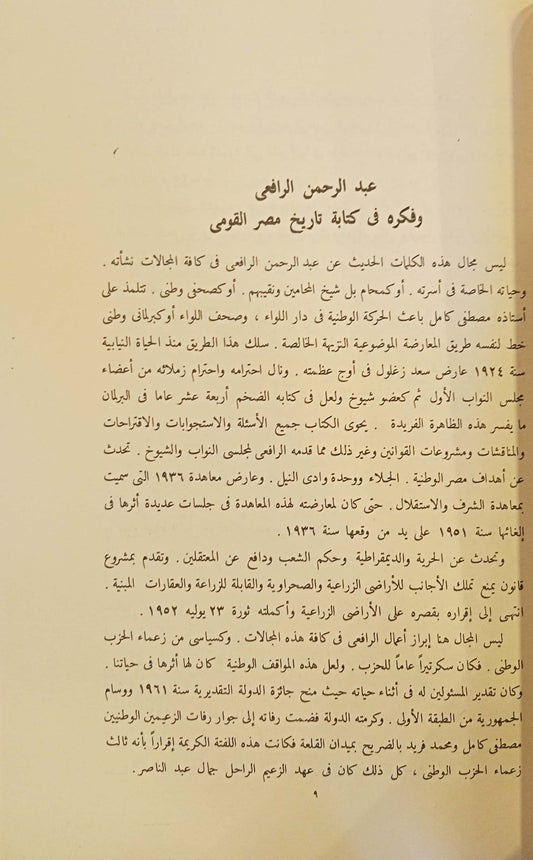 عبد الرحمن الرافعى
وفكره فى كتابة تاريخ مصر القومى
ليس مجال هذه الكلمات الحديث عن عبد الرحمن الرافعى فى كافة المجالات نشأته .
وحياته الخاصة فى أسرته . أو كمحام بل شيخ المحامين ونقيبهم . أو كصحفى وطنى . تتلمذ على
أستاذه مصطفى كامل باعث الحركة الوطنية فى دار اللواء ، وصحف اللواء أو كبرلمانى وطنى
خط لنفسه طريق المعارضة الموضوعية النزيهة الخالصة . سلك هذا الطريق منذ الحياة النيابية
سنة ١٩٢٤ عارض سعد زغلول فى أوج عظمته . ونال احترامه واحترام زملائه من أعضاء
مجلس النواب الأول ثم كعضو شيوخ ولعل فى كتابه الضخم أربعة عشر عاما فى البرلمان
ما يفسر هذه الظاهرة الفريدة . يحوى الكتاب جميع الأسئلة والاستجوابات والاقتراحات
والمناقشات ومشروعات القوانين وغير ذلك مما قدمه الرافعى لمجلسى النواب والشيوخ . تحدث
عن أهداف مصر الوطنية . الجلاء ووحدة وادى النيل . وعارض معاهدة ١٩٣٦ التى سميت
بمعاهدة الشرف والاستقلال . حتى كان لمعارضته لهذه المعاهدة فى جلسات عديدة أثرها فى
إلغائها سنة ١٩٥١ على يد من وقعها سنة ١٩٣٦ .
وتحدث عن الحرية والديمقراطية وحكم الشعب ودافع عن المعتقلين . وتقدم بمشروع
قانون يمنع تملك الأجانب للأراضى الزراعية والصحراوية والقابلة للزراعة والعقارات المبنية .
انتهى إلى إقراره بقصره على الأراضى الزراعية وأكملته ثورة ٢٣ يوليه ١٩٥٢ .
ليس المجال هنا إبراز أعمال الرافعى فى كافة هذه المجالات . وكسياسى من زعماء الحزب
الوطنى . فكان سكرتيراً عاماً للحزب . ولعل هذه المواقف الوطنية كان لها أثرها فى حياتنا .
وكان تقدير المسئولين له فى أثناء حياته حيث منح جائزة الدولة التقديرية سنة ١٩٦١ ووسام
الجمهورية من الطبقة الأولى . وكرمته الدولة فضمت رفاته إلى جوار رفات الزعيمين الوطنيين
مصطفى كامل ومحمد فريد بالضريح بميدان القلعة فكانت هذه اللفتة الكريمة إقراراً بأنه ثالث
زعماء الحزب الوطنى ، كل ذلك كان فى عهد الزعيم الراحل جمال عبد الناصر .
٩